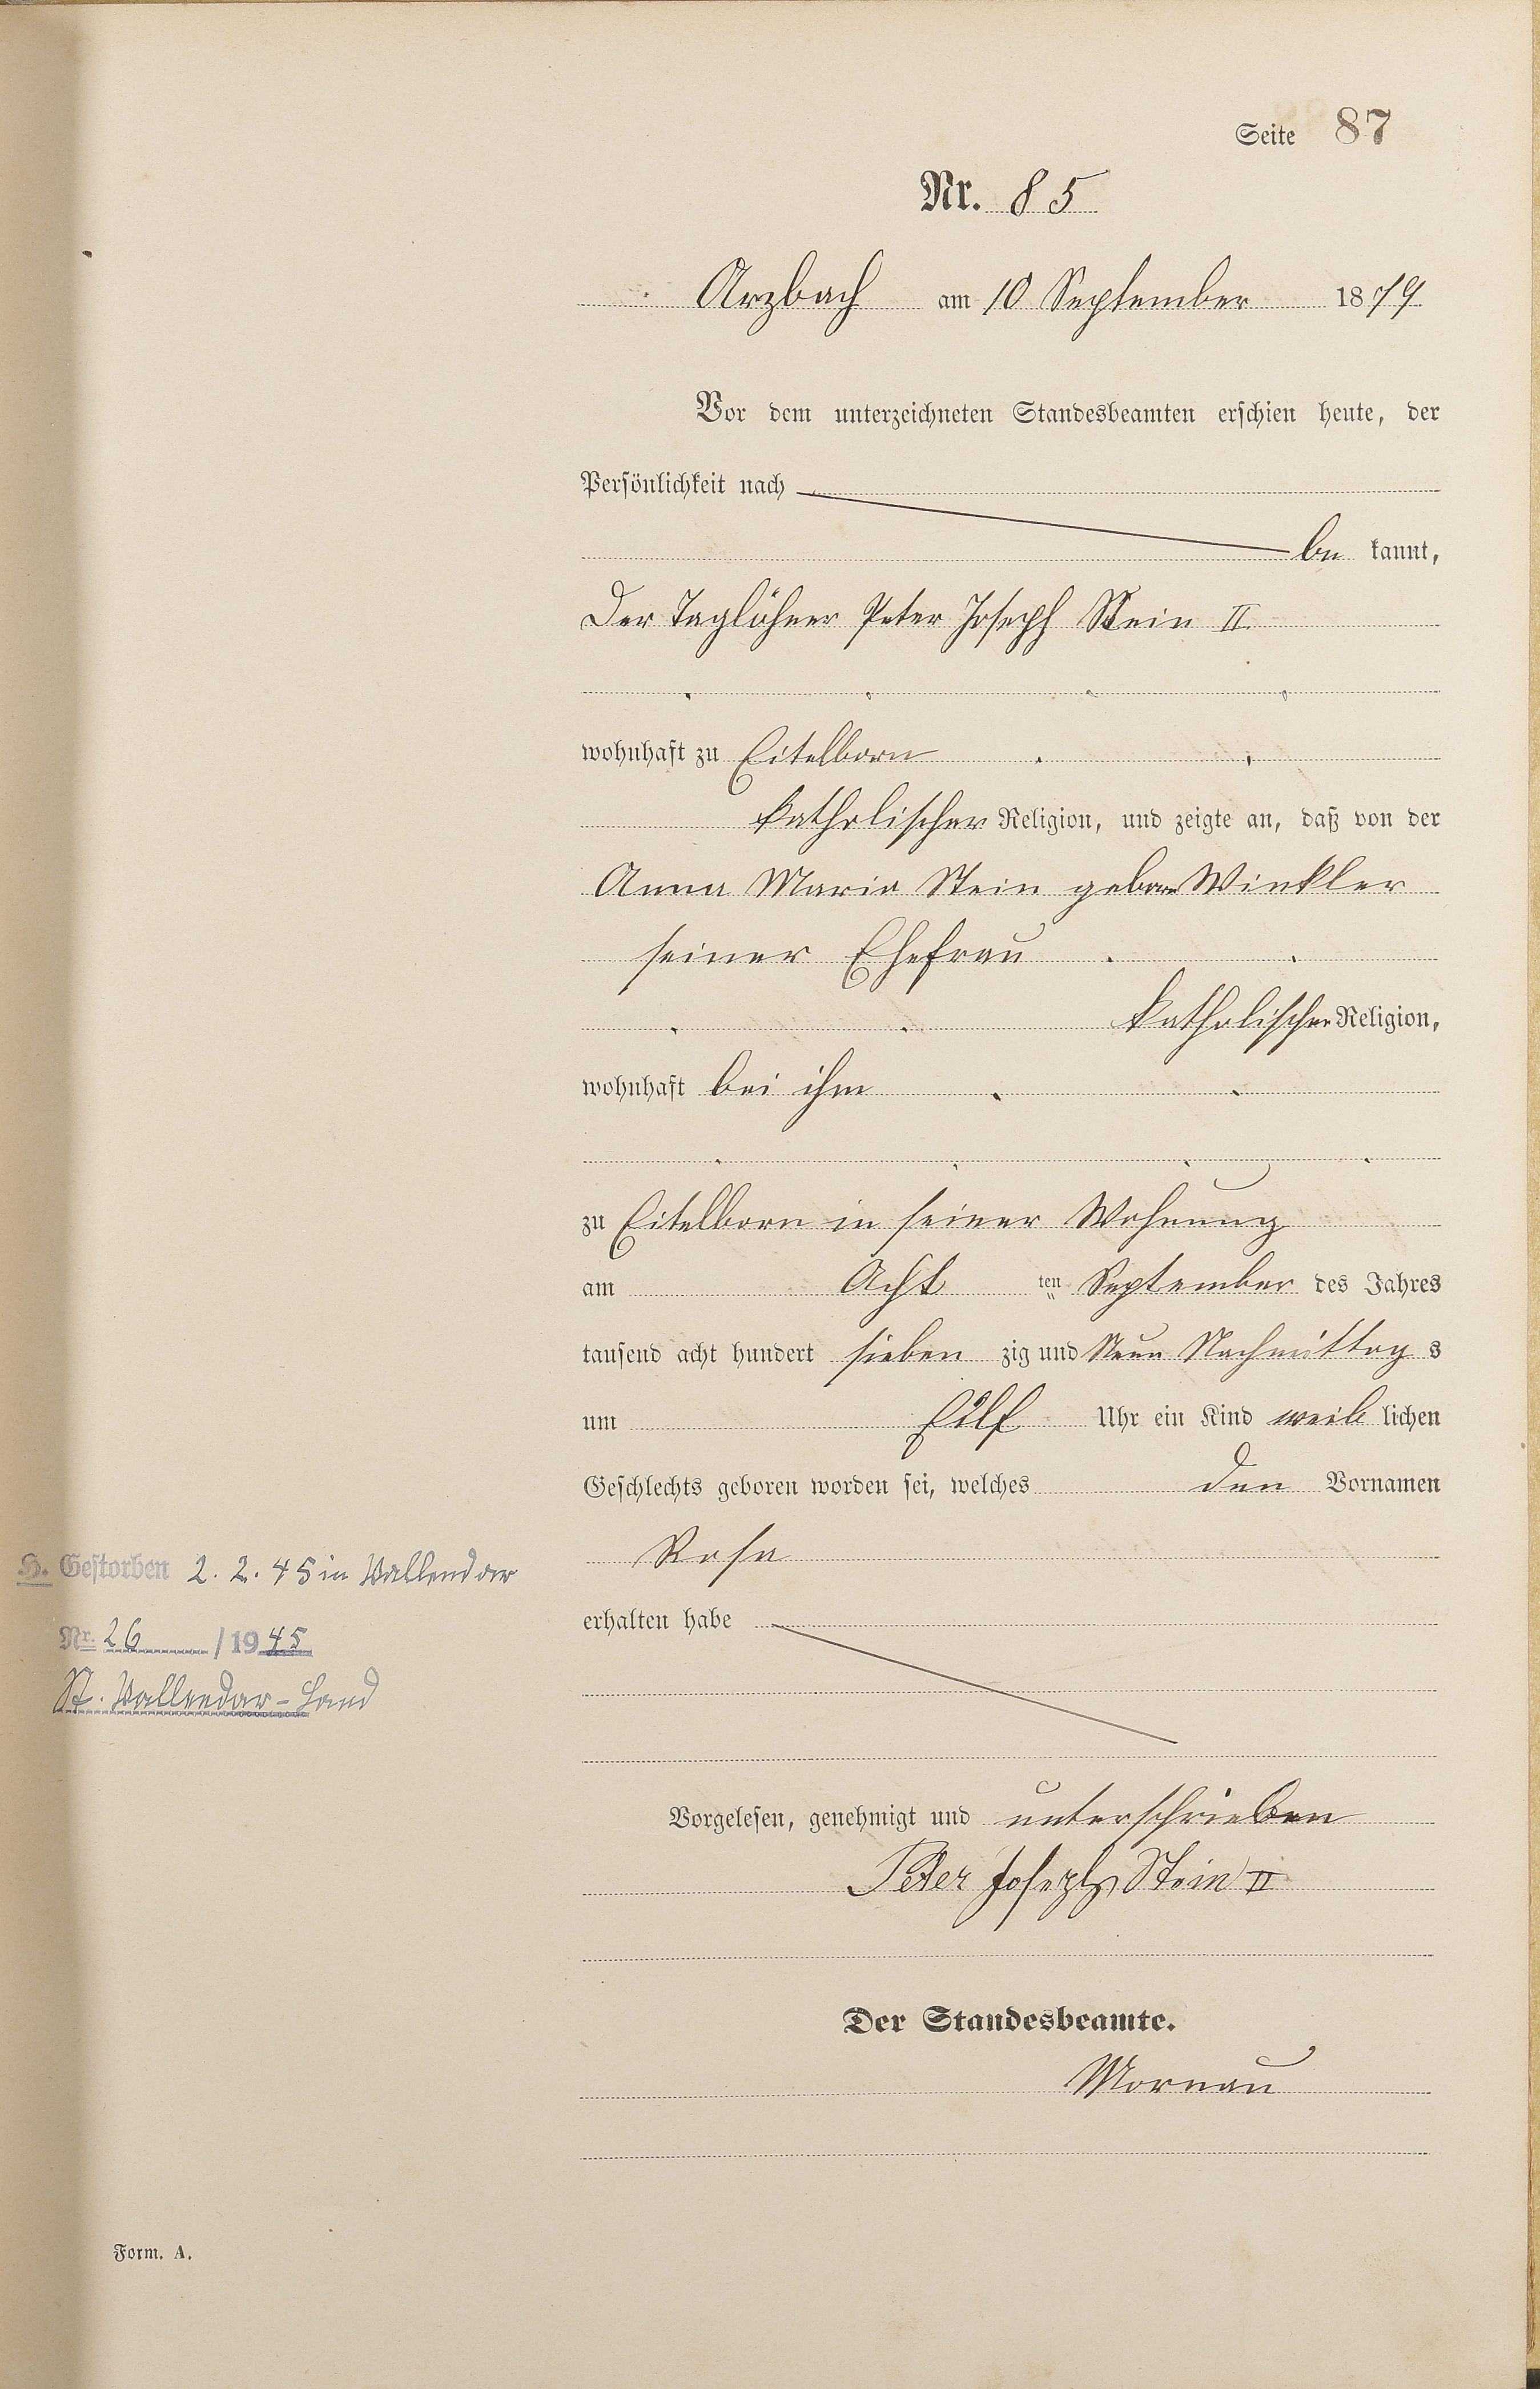 Seite 87
Nr. 85
Arzbach am 10 September 1879
Vor dem unterzeichneten Standesbeamten erschien heute, der
Persönlichkeit nach
be kannt,
Der Taglöhner Peter Joseph Stein II
wohnhaft zu Eitelborn
katholischer Religion, und zeigte an, daß von der
Anna Maria Stein geborne Winkler
seiner Ehefrau
katholischer Religion,
wohnhaft bei ihm
zu Eitelborn in seiner Wohnung
am Acht ten September des Jahres
tausend acht hundert sieben zig und Neun Nachmittag s
um Eilf Uhr ein Kind weib lichen
Geschlechts geboren worden sei, welches den Vornamen
Rosa
H. Gestorben 2. 2. 45 in Vallendar
Nr. 26 / 1945
St. Vallendar-Land
erhalten habe
Vorgelesen, genehmigt und unterschrieben
Peter Joseph Stein II
Der Standesbeamte.
Mornau
Form. A.